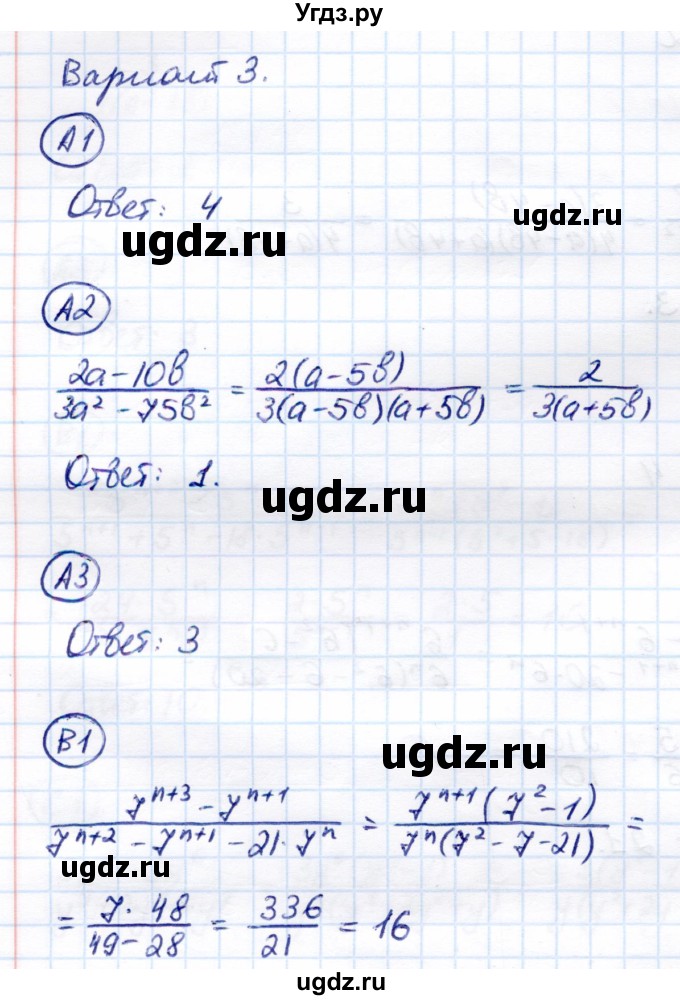 Угдз.ру
Вариант 3.
А1
Ответ: 4
ugdz.ru
А2
(2a - 10b)/(3a² - 75b²) = 2(a - 5b)/(3(a - 5b)(a + 5b)) = 2/(3(a + 5b))
Ответ: 1.
ugdz.ru
А3
Ответ: 3
В1
ugdz.ru
(7ⁿ⁺³ - 7ⁿ⁺¹)/(7ⁿ⁺² - 7ⁿ⁺¹ - 21·7ⁿ) = 7ⁿ⁺¹(7² - 1)/(7ⁿ(7² - 7 - 21)) =
ugdz.ru
= (7·48)/(49 - 28) = 336/21 = 16
ugdz.ru